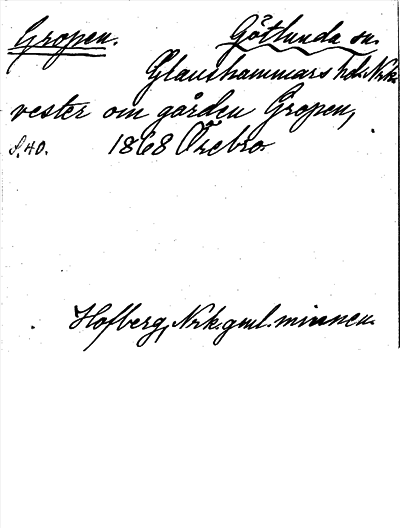 Gropen. Götlunda sn.
Glanshammars hd. Nrk.
vester om gården Gropen,
s. 40. 1868 Örebro
Hofberg, Nrk. gml. minnen.